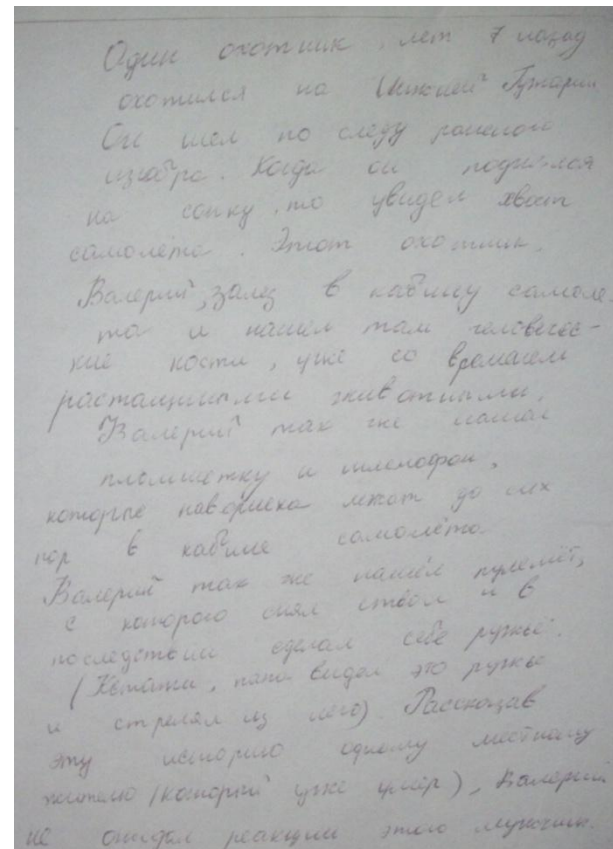 Один охотник, лет 7 назад
охотился на Нижней Гужарки
Он шел по следу раненой
изюбра. Когда он поднялся
на сопку, то увидел хвост
самолёта. Этот охотник,
Валерий, залез в кабину самоле
та и нашел там человечес-
кие кости, уже со временем
растащиными животными.
Валерий так же нашел
планшетку и шлемофон,
которые наверняка лежат до сих
пор в кабине самолёта.
Валерий так же нашёл пулемёт,
с которого снял ствол и в
последствии сделал себе ружьё.
(Кстати, папа видел это ружьё
и стрелял из него). Рассказав
эту историю одному местному
жителю (который уже умер), Валерий
не ожидал реакции этого мужчин.